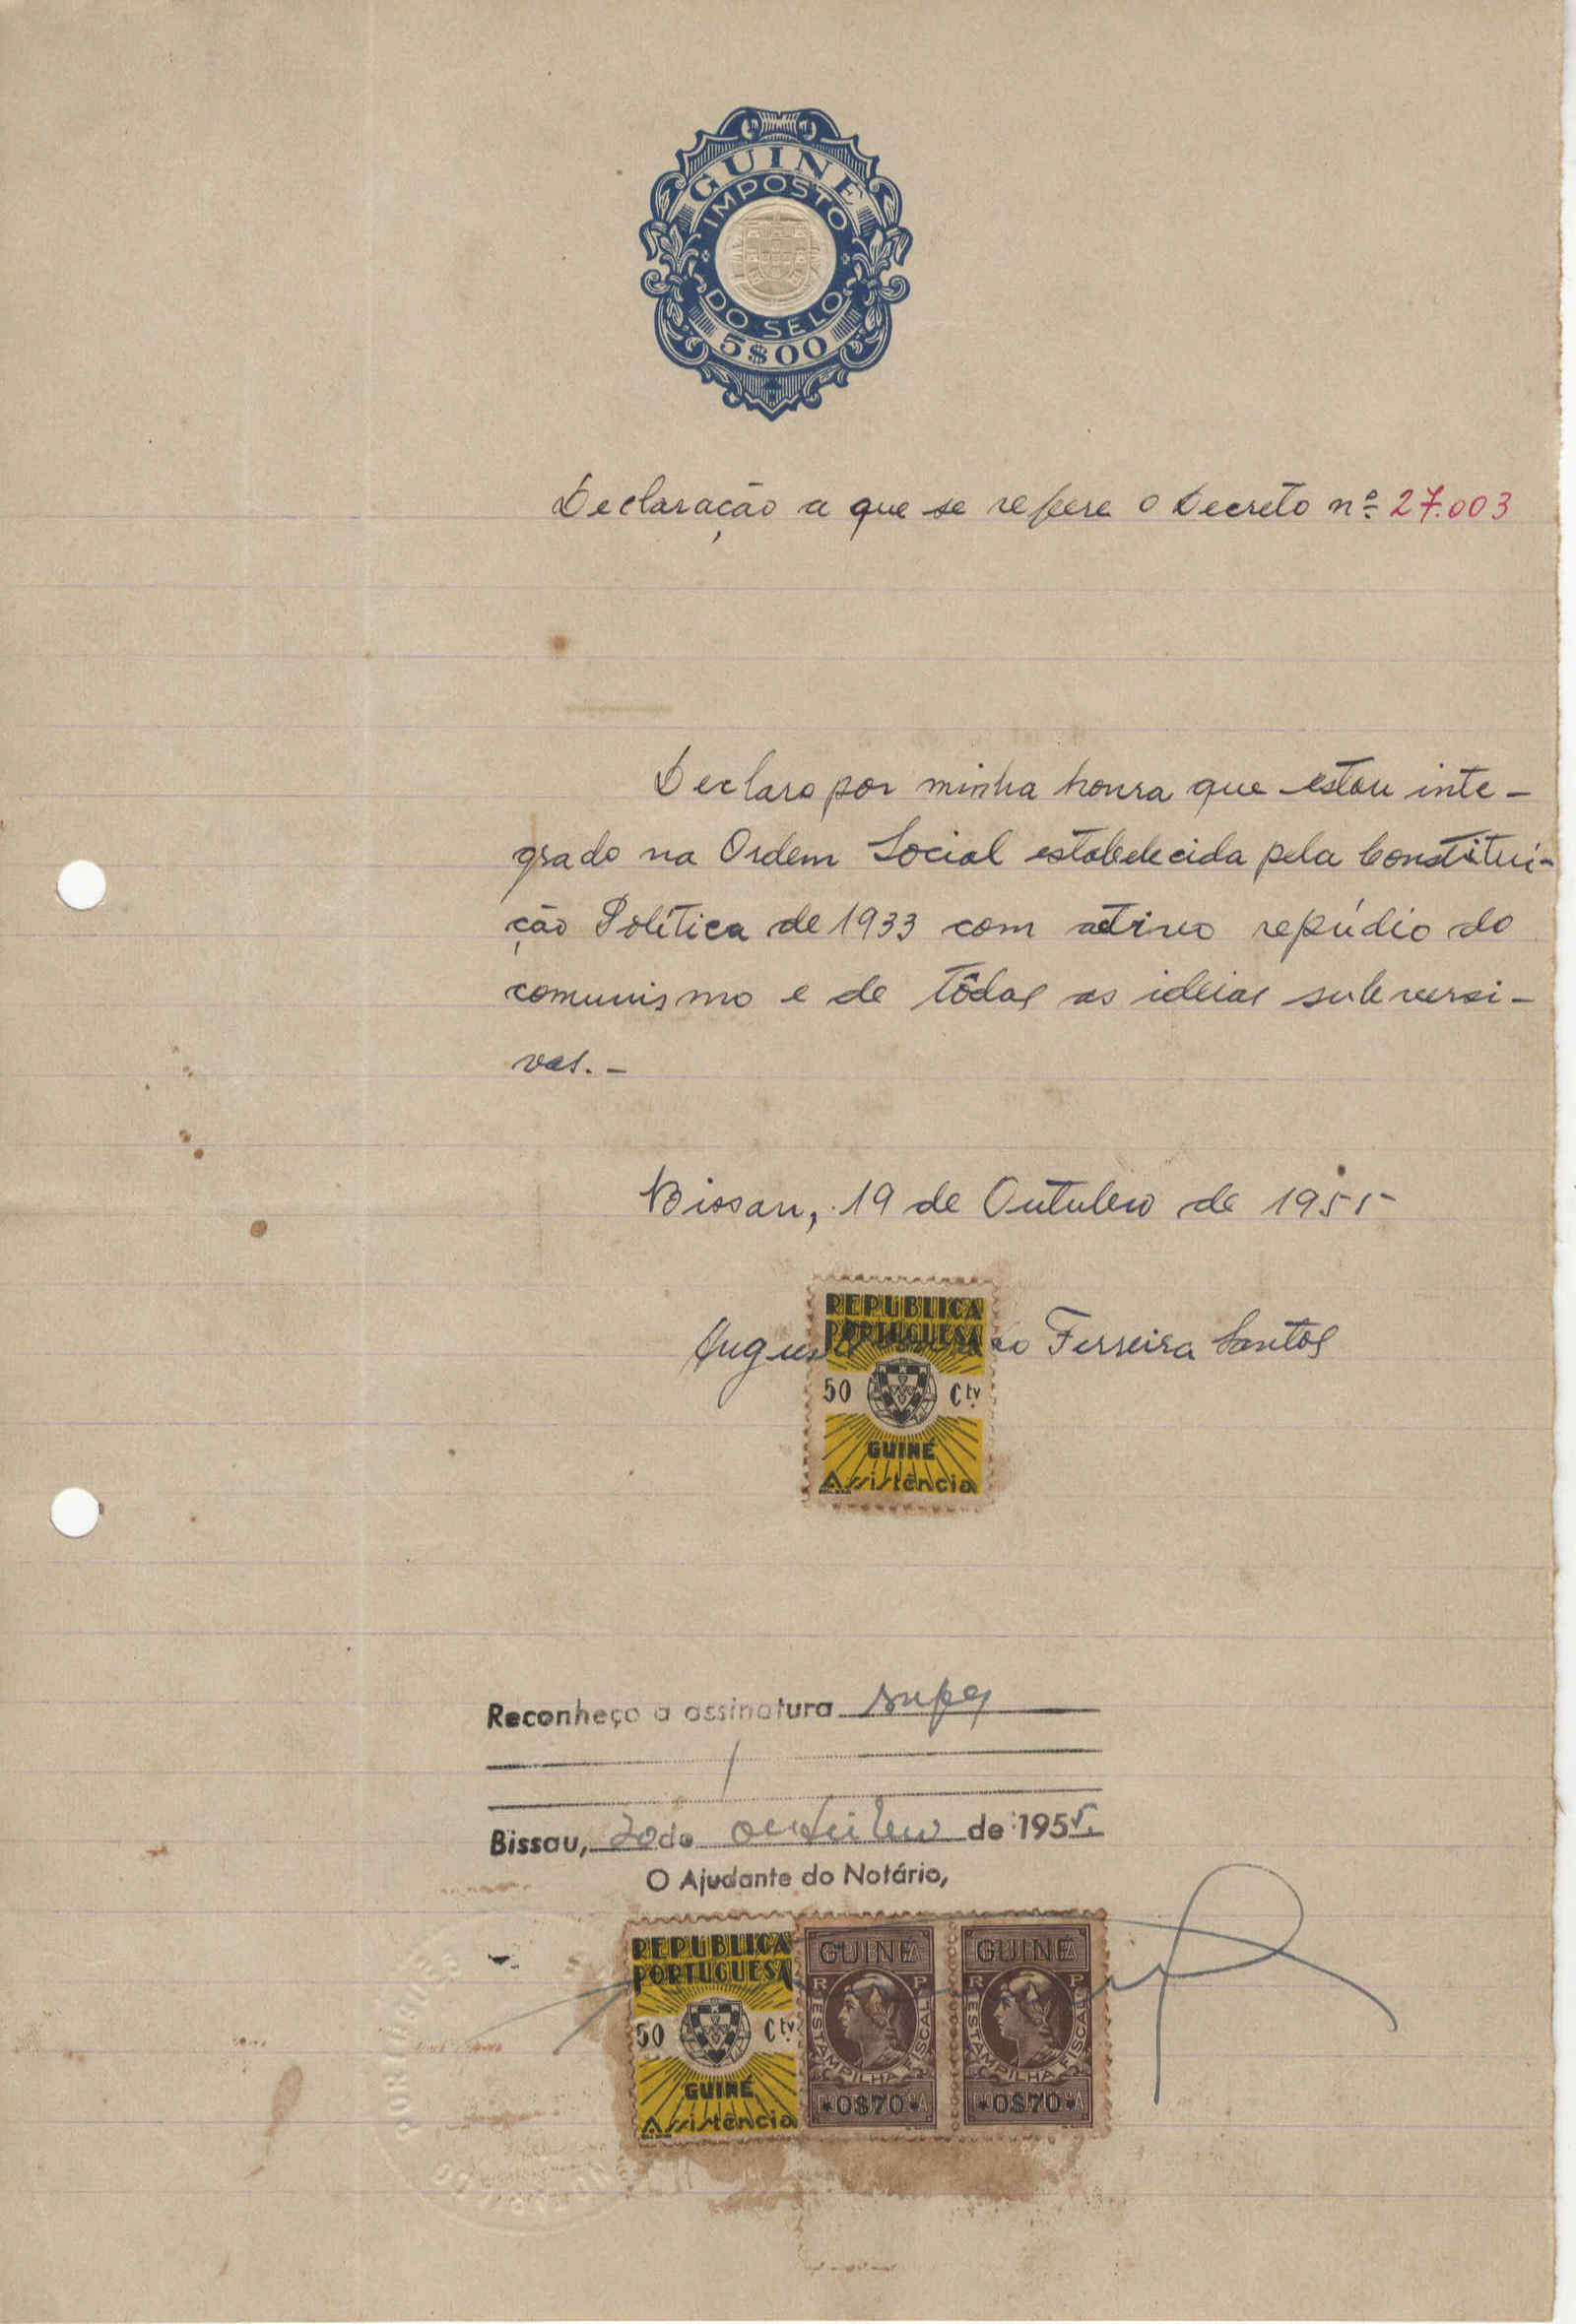 GUINÉ
IMPOSTO
DO SELO
5$00
Declaração a que se refere o Decreto nº 27.003
Declaro por minha honra que estou inte-
grado na Ordem Social estabelecida pela Constitui-
ção Política de 1933 com activo repúdio do
comunismo e de tôdas as ideias subversi-
vas.-
Bissau, 19 de Outubro de 1955
REPUBLICA
PORTUGUESA
Ferreira Santos
50 Ctv
GUINÉ
Assistência
Reconheço a assinatura supra
Bissau, 20 de outubro de 1955.
O Ajudante do Notário,
REPUBLICA
PORTUGUESA
50 Ctv
GUINÉ
Assistência
GUINÉ
R P
ESTAMPILHA FISCAL
0$70
GUINÉ
R P
ESTAMPILHA FISCAL
0$70